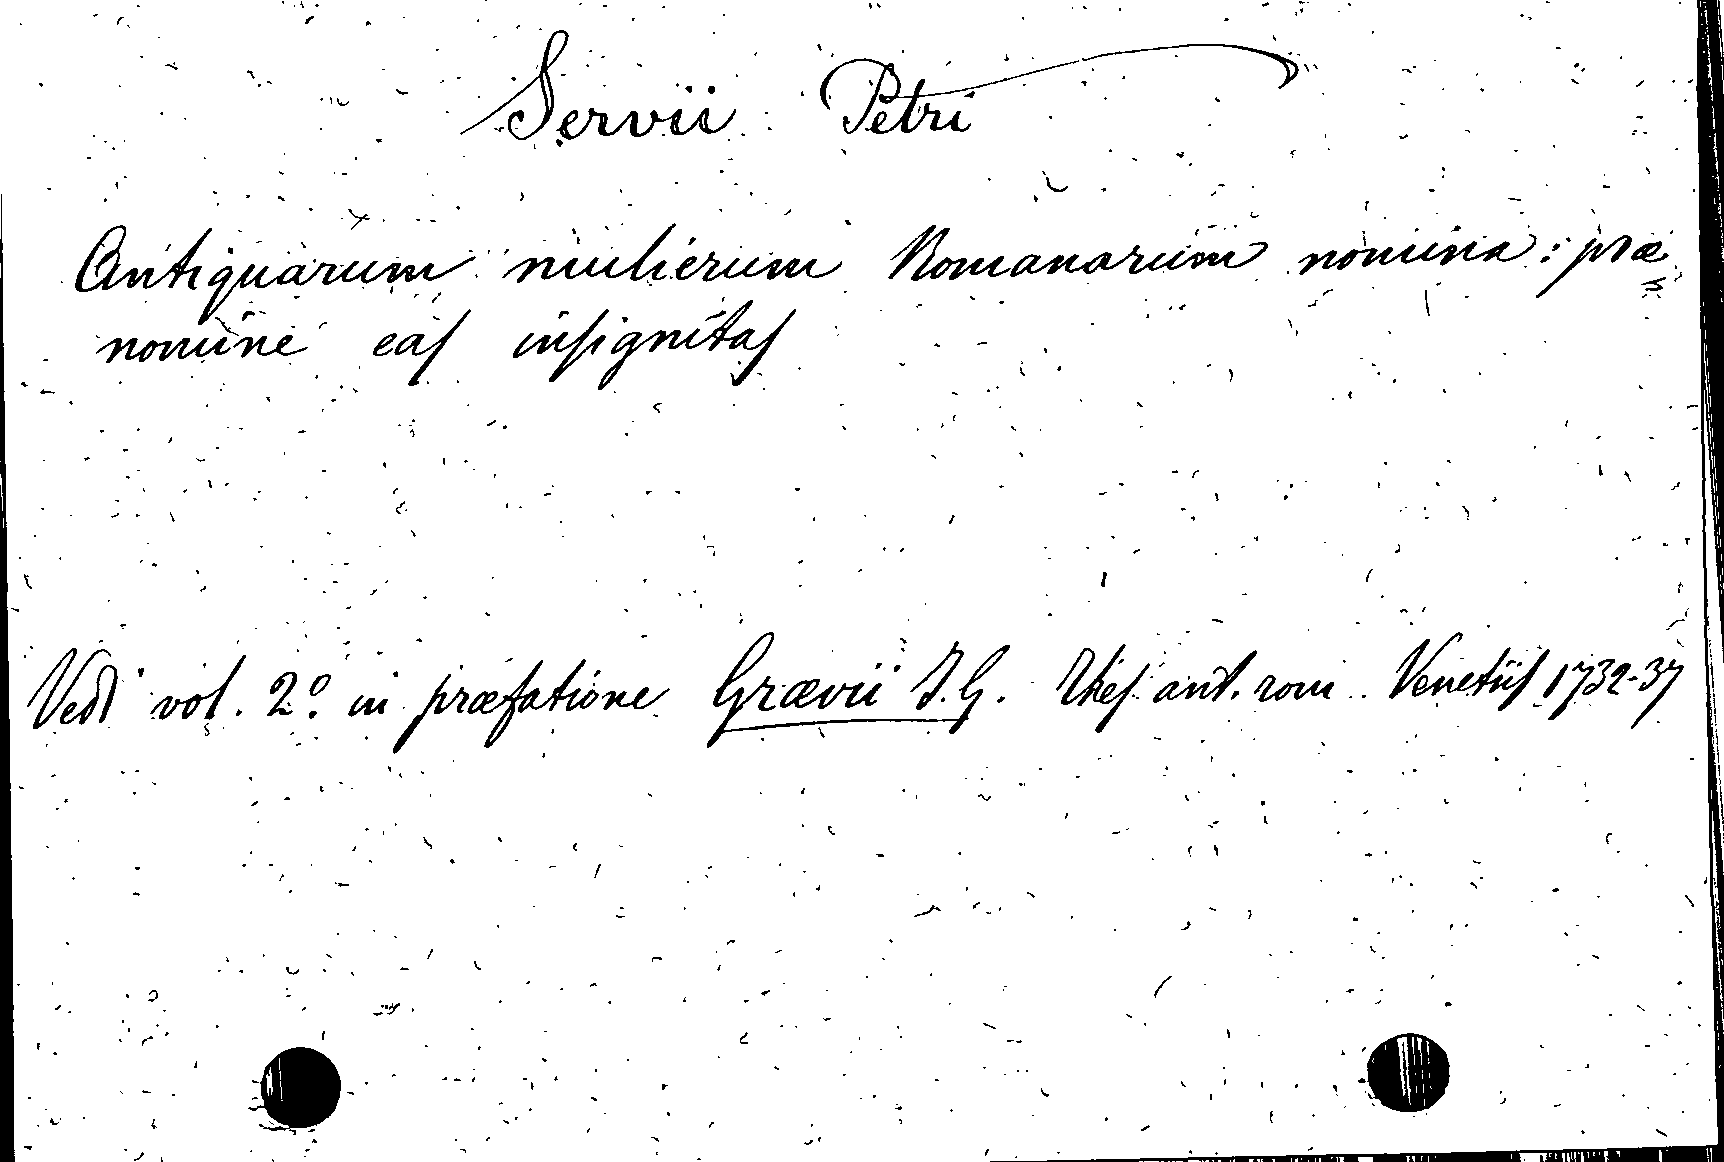 Servii Petri
Antiquarum mulierum Romanarum nomina: præ
nomine eas insignitas
Vedi vol. 2º in præfatione Grævii J. G. Thes. ant. rom. Venetiis 1732-37